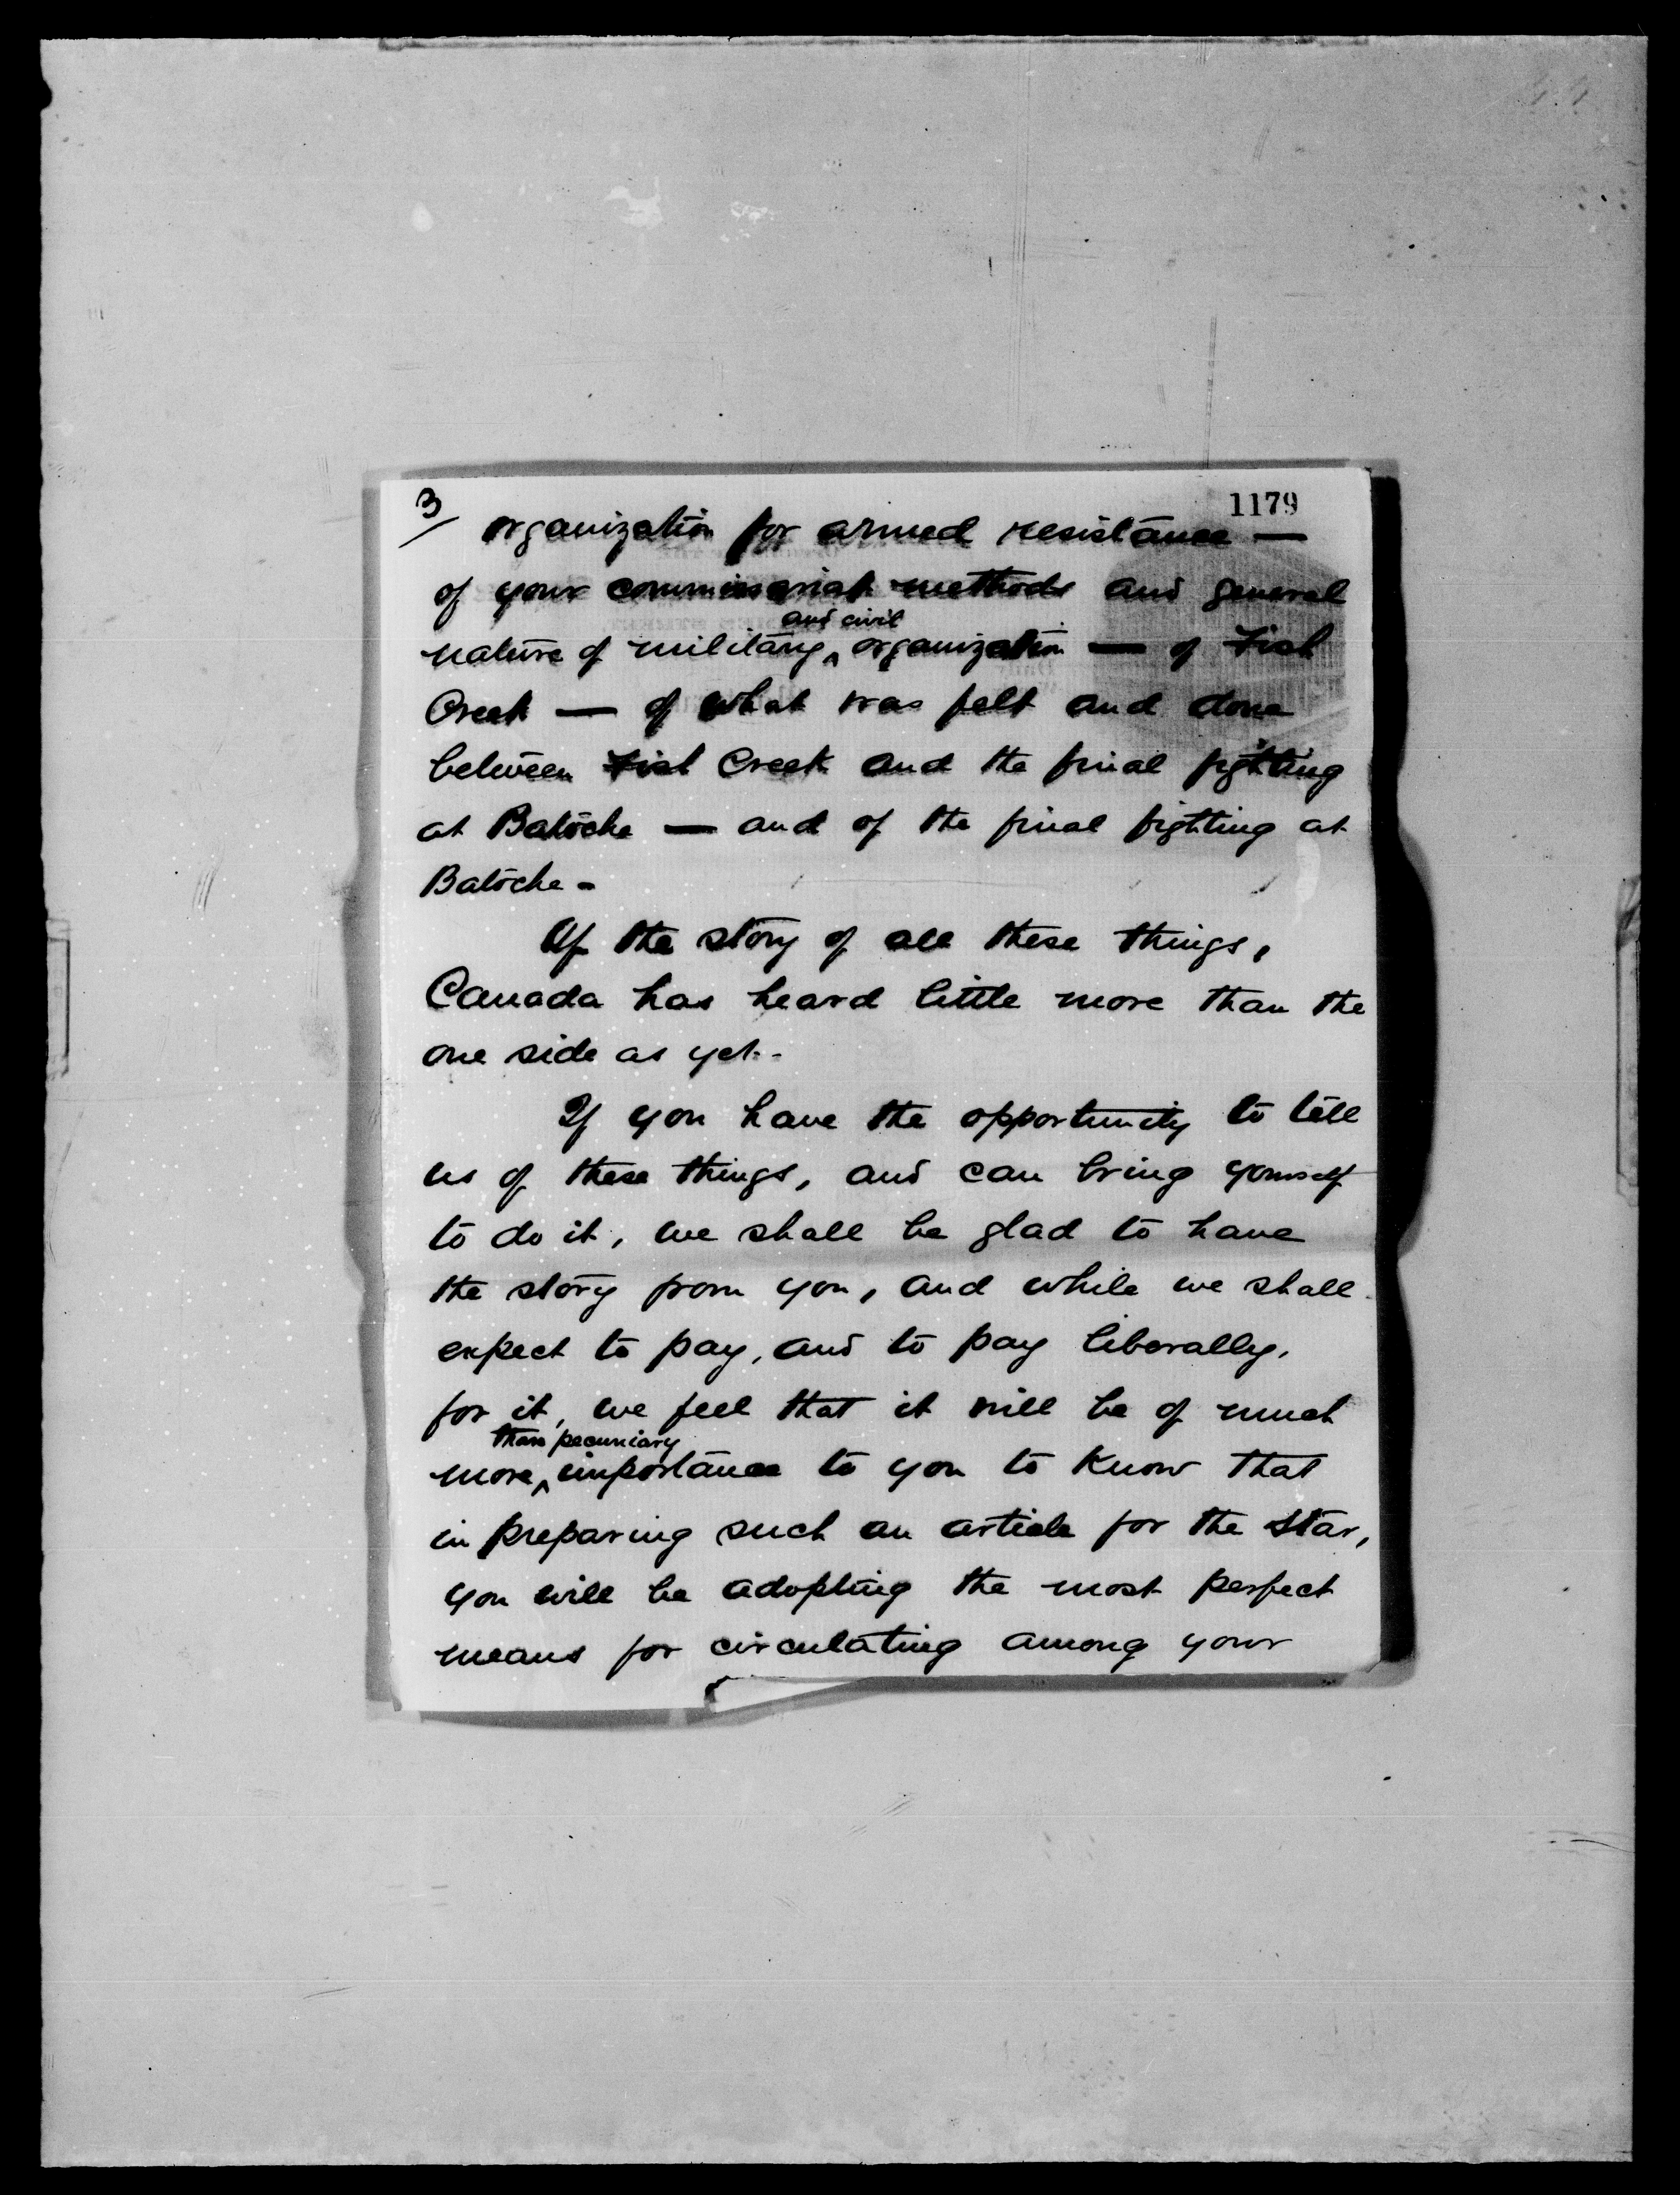 3/
1179
organization for armed resistance —
of your commissariat methods and general
and civil
nature of military ^ organization — of Fish
Creek — of what was felt and done
between Fish Creek and the final fighting
at Batoche — and of the final fighting at
Batoche -
Of the story of all these things,
Canada has heard little more than the
one side as yet.-
If you have the opportunity to tell
us of these things, and can bring yourself
to do it, we shall be glad to have
the story from you, and while we shall
expect to pay, and to pay liberally,
for it, we feel that it will be of much
than pecuniary
more ^ importance to you to know that
in preparing such an article for the Star,
you will be adopting the most perfect
means for circulating among your